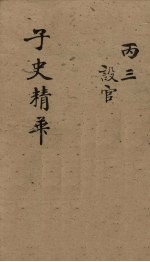 丙三
設官
子史精華